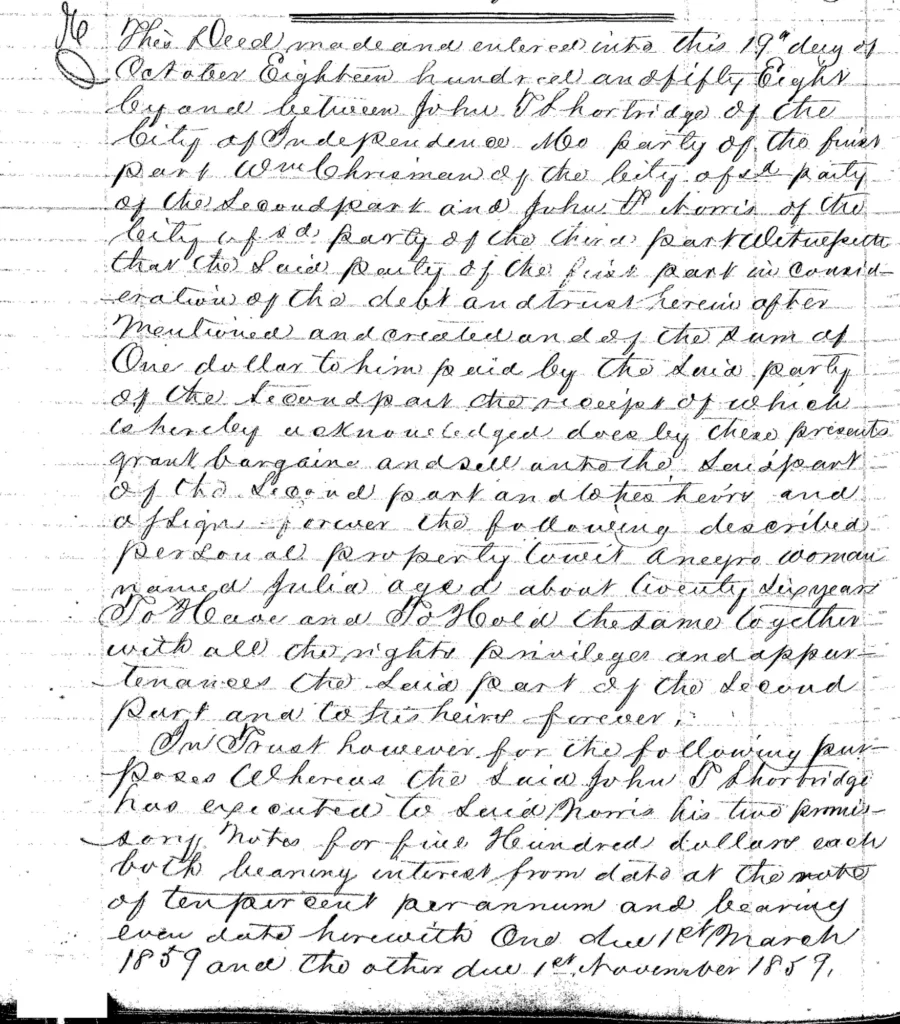 This Deed made and entered into this 19th day of
October Eighteen hundred and fifty Eight
by and between John T Shortridge of the
City of Independence Mo party of the first
part Wm Chrisman of the City afsd party
of the Second part and John P Norris of the
City afsd party of the third part Witnesseth
that the Said party of the first part in consid-
eration of the debt and trust herein after
Mentioned and created and of the Sum of
One dollar to him paid by the Said party
of the Second part the receipt of which
is hereby acknowledged does by these presents
grant bargain and sell unto the Said part
of the Second part and to his heirs and
assign forever the following described
personal property towit a negro woman
named Julia aged about twenty Six years
To Have and To Hold the same together
with all the rights privileges and appur-
tenances the Said part of the Second
part and to his heirs forever.
In Trust however for the following pur-
poses Whereas the Said John T Shortridge
has executed to Said Norris his two promis-
sory Notes for five Hundred dollars each
both bearing interest from date at the rate
of ten per cent per annum and bearing
even date herewith One due 1st March
1859 and the other due 1st November 1859.